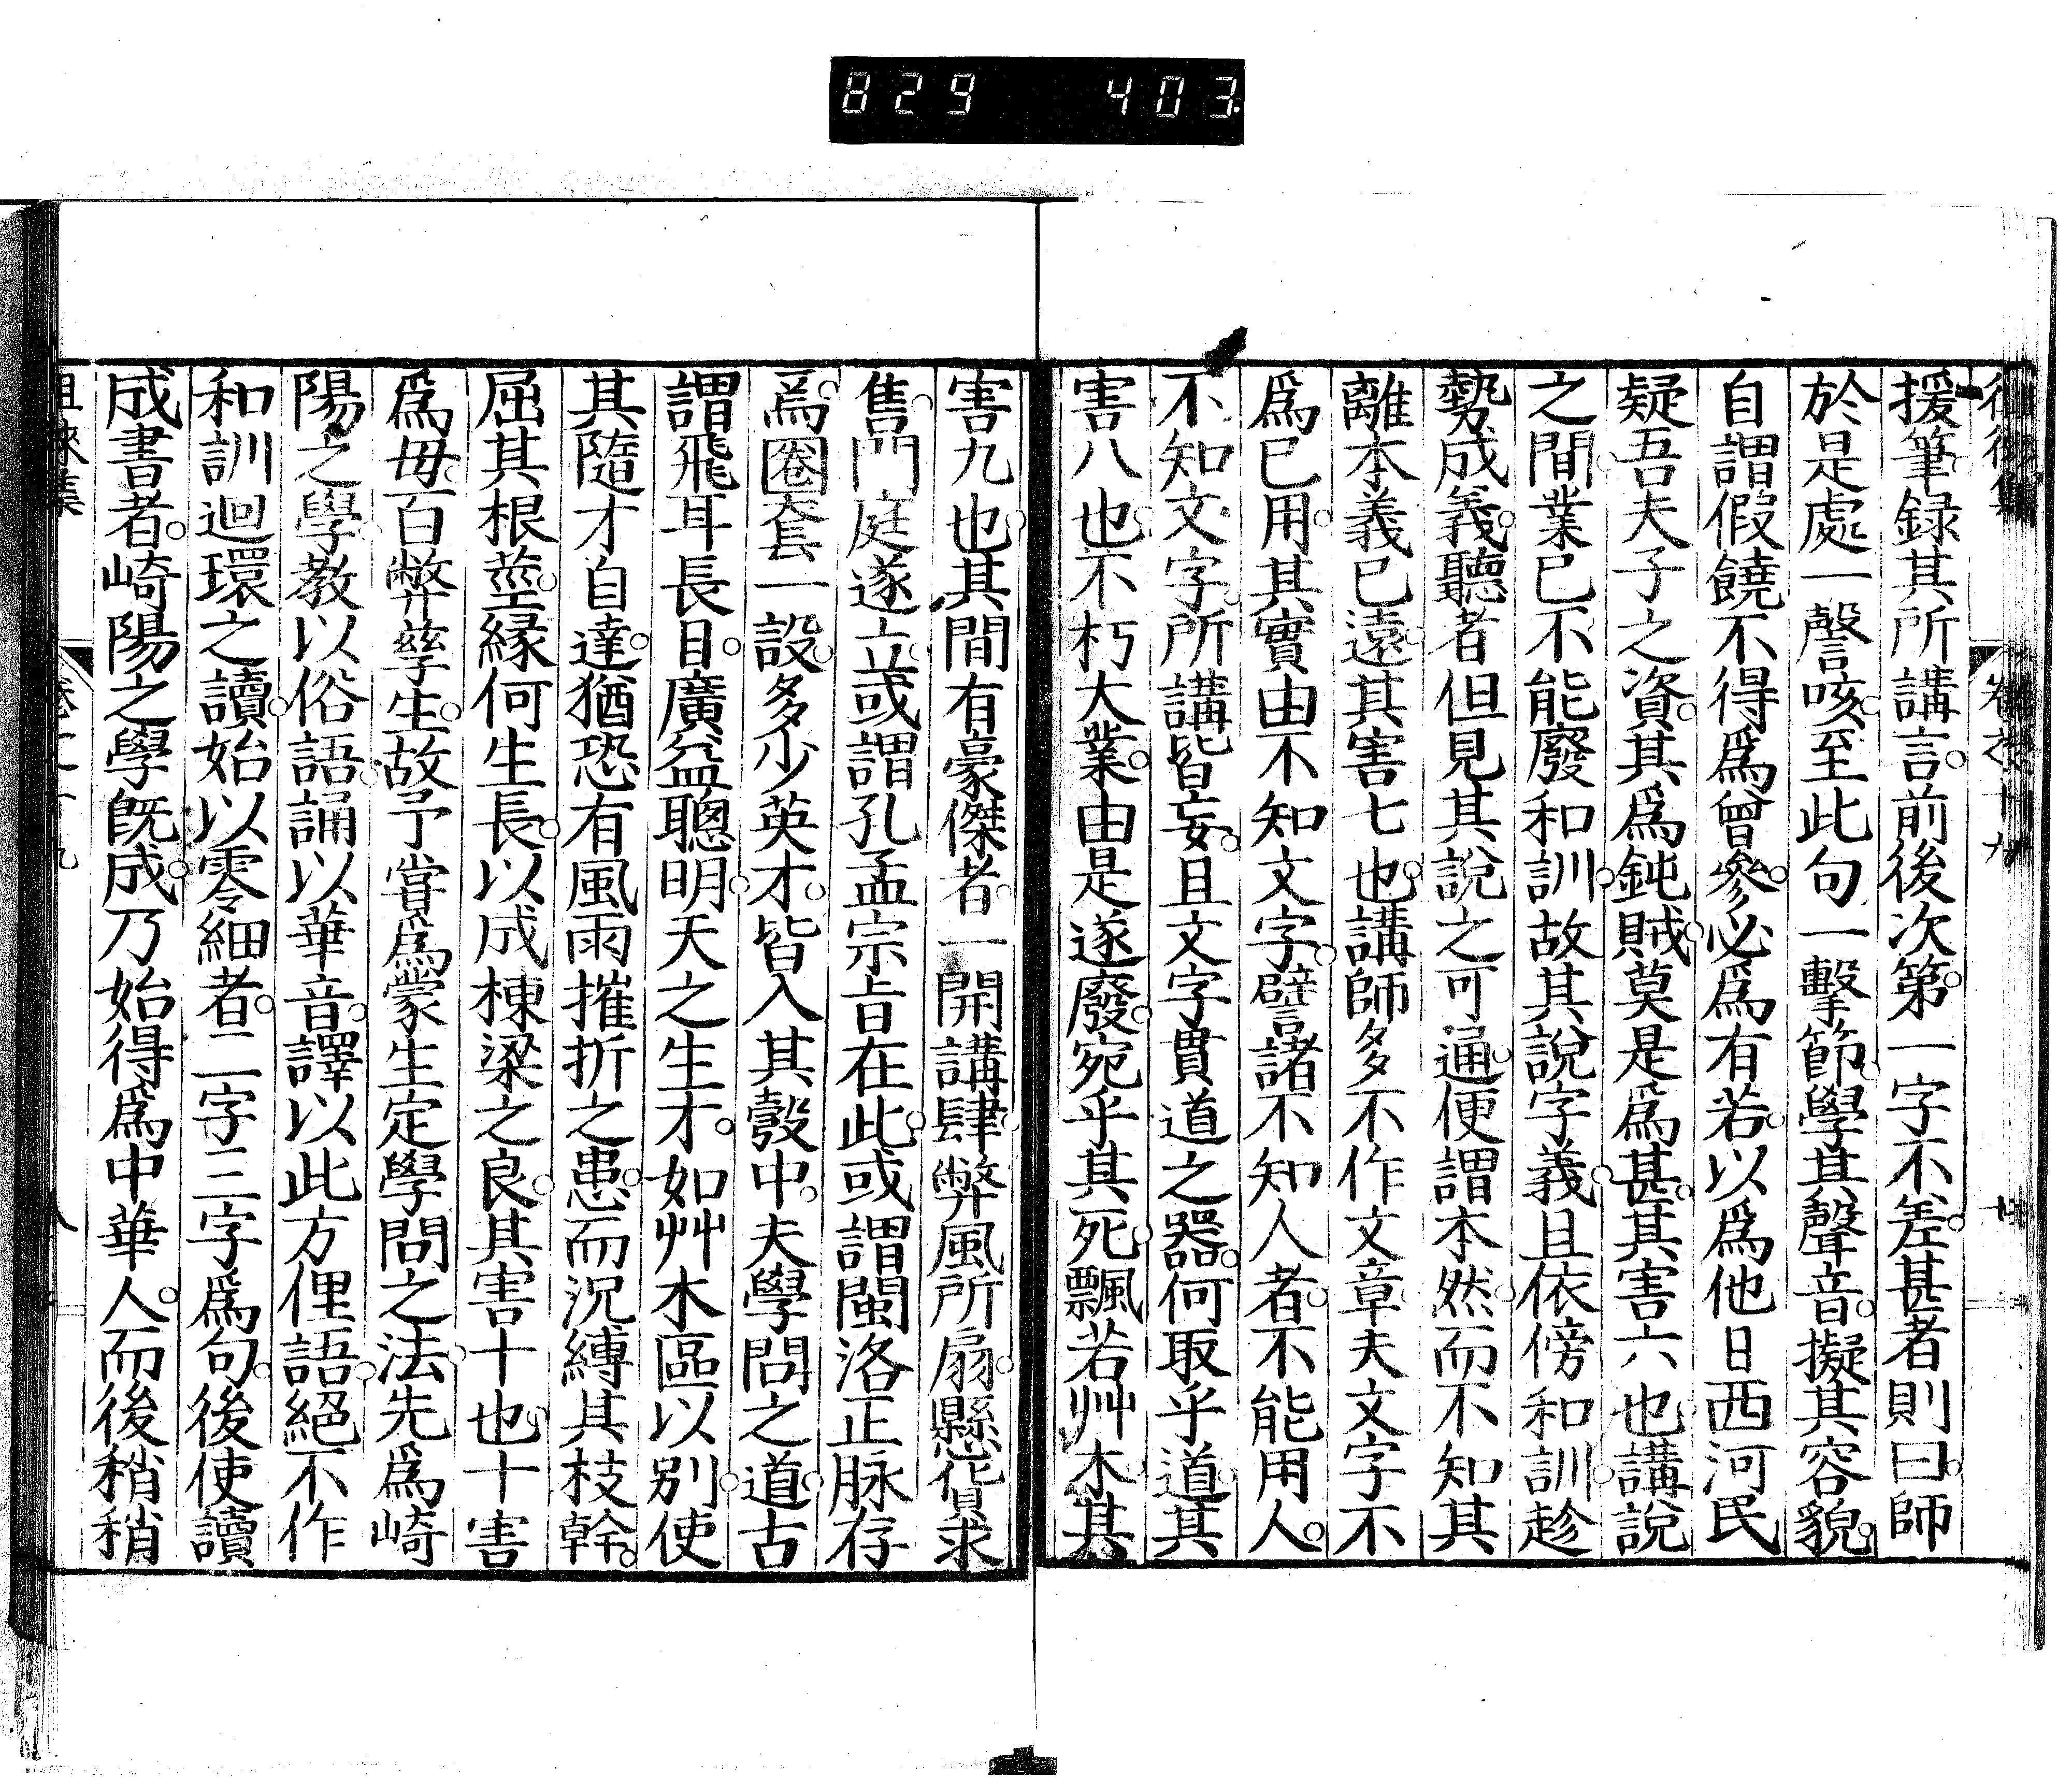 829 403
援筆。録其所講言。前後次第。一字不差。甚者則曰。師
於是處一謦咳。至此句一擊節。學其聲音。擬其容貌。
自謂假饒不得爲曾參。必爲有若。以爲他日西河民
疑吾夫子之資。其爲鈍賊。莫是爲甚。其害六也。講說
之間。業已不能廢和訓。故其說字義。且依傍和訓。趁
勢成義。聽者但見其說之可通。便謂本然。而不知其
離本義已遠。其害七也。講師多不作文章。夫文字不
爲己用。其實由不知文字。譬諸不知人者。不能用人。
不知文字。所講皆妄。且文字貫道之器。何取乎道。其
害八也。不朽大業。由是遂廢。宛乎其死。飄若艸木。其
害九也。其間有豪傑者。一開講肆。弊風所扇。懸貨求
售。門庭遂立。或謂孔孟宗旨在此。或謂閩洛正脉存
焉。圈套一設。多少英才。皆入其彀中。夫學問之道。古
謂飛耳長目。廣益聰明。天之生才。如艸木區以別。使
其隨才自達。猶恐有風雨摧折之患。而況縛其枝幹。
屈其根莖。縁何生長。以成棟梁之良。其害十也。十害
爲毋。百弊孳生。故予嘗爲蒙生定學問之法。先爲崎
陽之學。教以俗語。誦以華音。譯以此方俚語。絕不作
和訓迴環之讀。始以零細者。二字三字爲句。後使讀
成書者。崎陽之學既成。乃始得爲中華人。而後稍稍